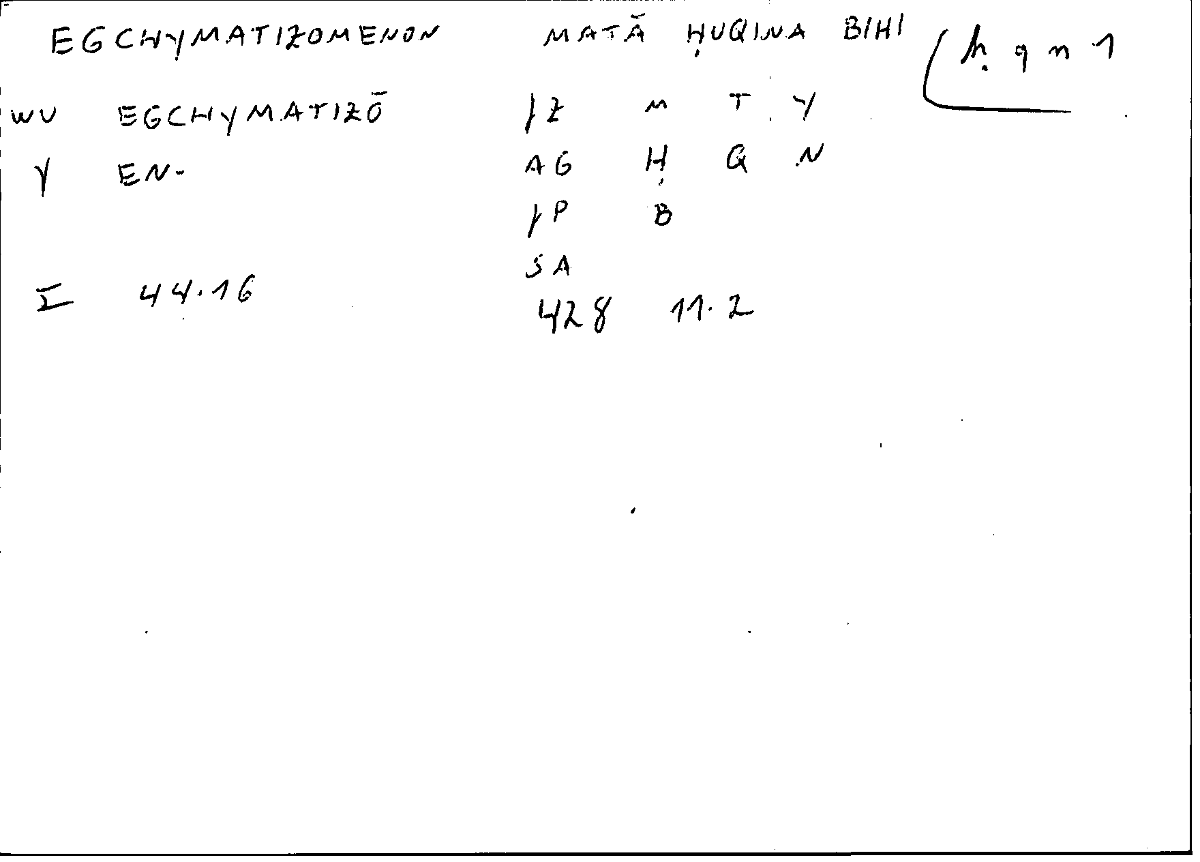 EGCHYMATIZOMENON MATĀ ḤUQINA BIHI ḥ q n 1
WU EGCHYMATIZŌ JZ M T Y
Y EN- AG Ḥ Q N
JP B
SA
I 44.16
428 11.2